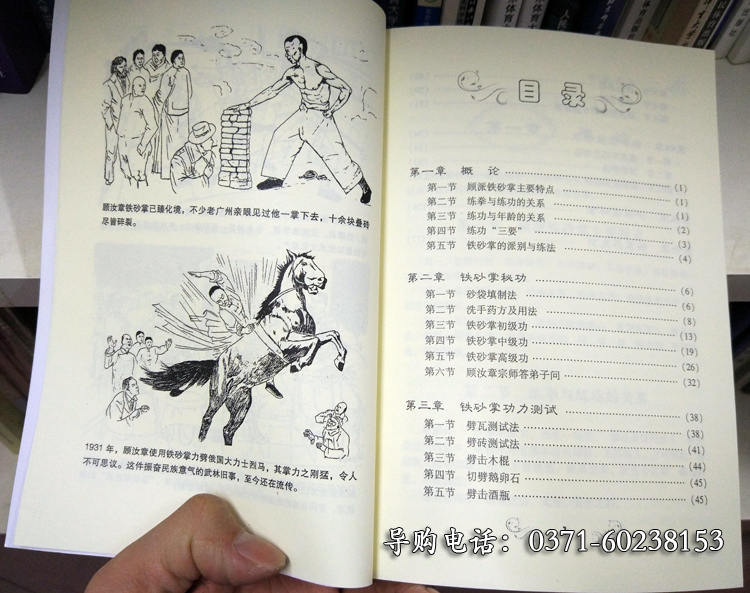 顾汝章铁砂掌已臻化境，不少老广州亲眼见过他一掌下去，十余块叠砖
尽皆碎裂。
1931年，顾汝章使用铁砂掌力劈俄国大力士烈马，其掌力之刚猛，令人
不可思议。这件振奋民族意气的武林旧事，至今还在流传。
目录
第一章 概 论 (1)
第一节 顾派铁砂掌主要特点 (1)
第二节 练拳与练功的关系 (1)
第三节 练功与年龄的关系 (2)
第四节 练功“三要” (3)
第五节 铁砂掌的派别与练法 (4)
第二章 铁砂掌秘功 (6)
第一节 砂袋填制法 (6)
第二节 洗手药方及用法 (8)
第三节 铁砂掌初级功 (13)
第四节 铁砂掌中级功 (19)
第五节 铁砂掌高级功 (26)
第六节 顾汝章宗师答弟子问 (32)
第三章 铁砂掌功力测试 (38)
第一节 劈瓦测试法 (38)
第二节 劈砖测试法 (41)
第三节 劈击木棍 (44)
第四节 切劈鹅卵石 (45)
第五节 劈击酒瓶 (45)
导购电话：0371-60238153